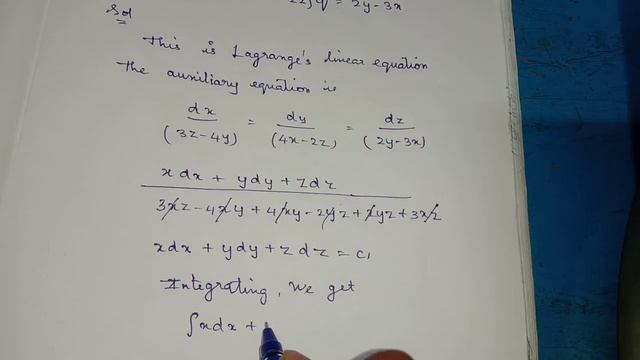 = 2y-3x
Sol
This is Lagrange's linear equation
The auxiliary equation is
dx/(3z-4y) = dy/(4x-2z) = dz/(2y-3x)
xdx + ydy + zdz
3xz-4xy + 4xy-2yz + 2yz + 3xz
xdx + ydy + zdz = c1
Integrating, we get
∫xdx +